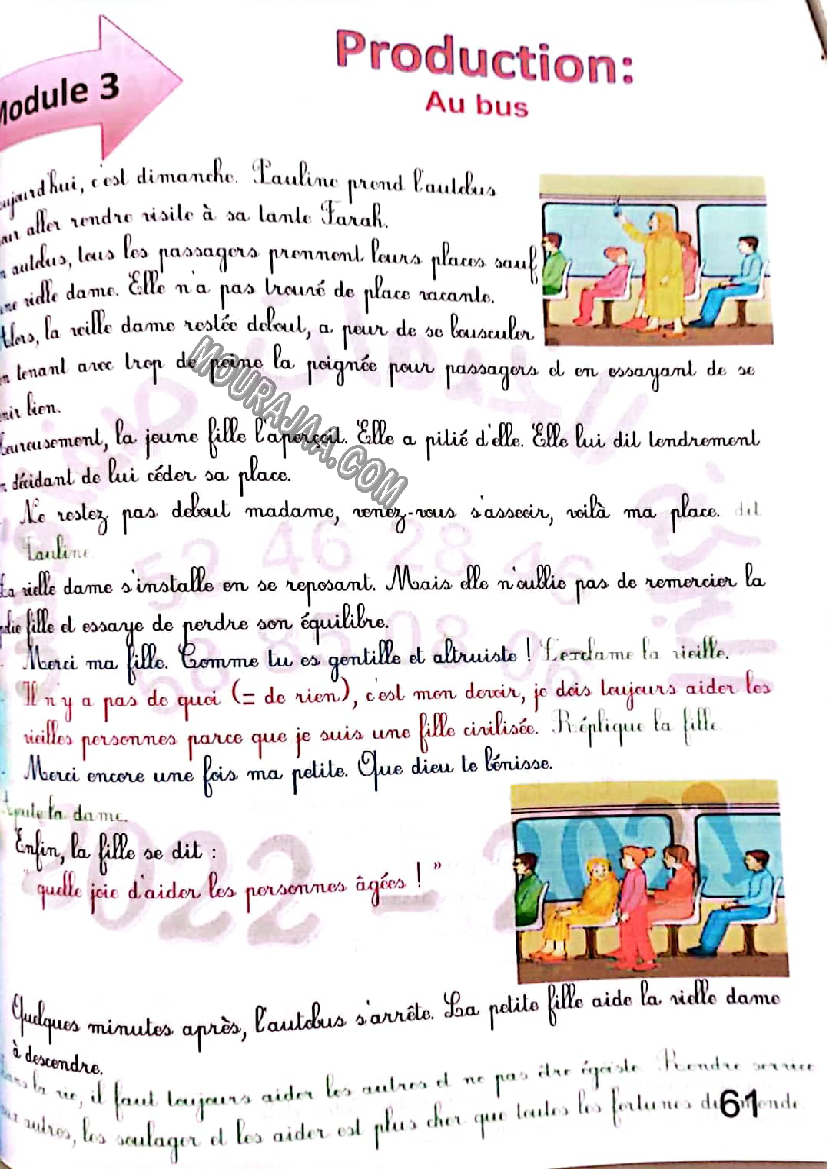 Module 3
Production:
Au bus
Aujourd'hui, c'est dimanche. Pauline prend l'autobus
pour aller rendre visite à sa tante Farah.
autobus, tous les passagers prennent leurs places sauf
une vielle dame. Elle n'a pas trouvé de place vacante.
Alors, la veille dame restée debout, a peur de se bousculer
en tenant avec trop de peine la poignée pour passagers et en essayant de se
tenir bien.
Heureusement, la jeune fille l'aperçoit. Elle a pitié d'elle. Elle lui dit tendrement
en décidant de lui céder sa place.
- Ne restez pas debout madame, venez-vous s'asseoir, voilà ma place. dit
Pauline
La vielle dame s'installe en se reposant. Mais elle n'oublie pas de remercier la
jolie fille et essaye de perdre son équilibre.
- Merci ma fille. Comme tu es gentille et altruiste ! S'exclame la vieille.
- Il n'y a pas de quoi (= de rien), c'est mon devoir, je dois toujours aider les
vieilles personnes parce que je suis une fille civilisée. Réplique la fille.
- Merci encore une fois ma petite. Que dieu te bénisse.
Ajoute la dame.
Enfin, la fille se dit :
" quelle joie d'aider les personnes âgées ! "
Quelques minutes après, l'autobus s'arrête. La petite fille aide la vielle dame
à descendre.
Dans la vie, il faut toujours aider les autres et ne pas être égoïste. Rendre service
aux autres, les soulager et les aider est plus cher que toutes les fortunes du monde.
61
MOURAJAA.COM
52 46 28 46
2022 - 2021